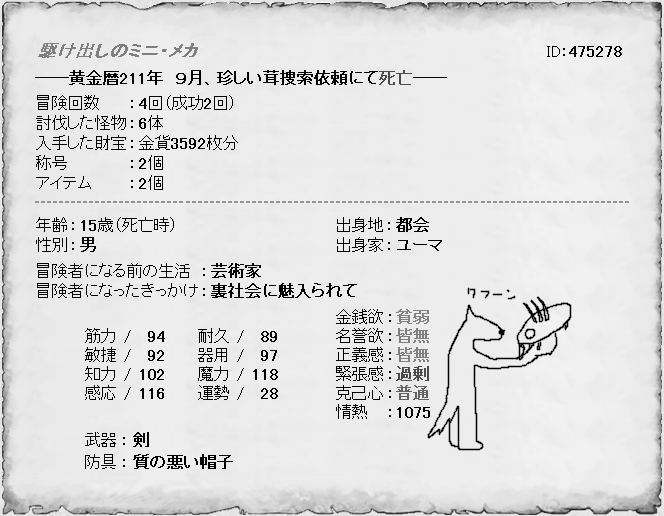 駆け出しのミニ・メカ ID：475278
――黄金暦211年　９月、珍しい茸捜索依頼にて死亡――
冒険回数　　：4回（成功2回）
討伐した怪物：6体
入手した財宝：金貨3592枚分
称号　　　　：2個
アイテム　　：2個
年齢：15歳（死亡時） 出身地：都会
性別：男 出身家：ユーマ
冒険者になる前の生活　：芸術家
冒険者になったきっかけ：裏社会に魅入られて
クフーン
金銭欲：貧弱
筋力 / 94 耐久 / 89 名誉欲：皆無
敏捷 / 92 器用 / 97 正義感：皆無
知力 / 102 魔力 / 118 緊張感：過剰
感応 / 116 運勢 / 28 克己心：普通
情熱　：1075
武器：剣
防具：質の悪い帽子